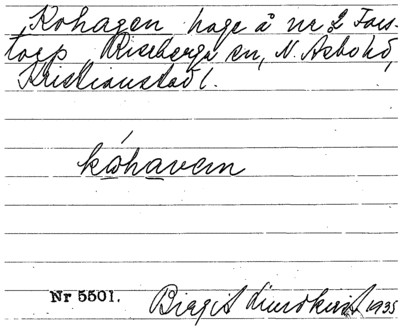 Kohagen hage å nr 2 Fors-
torp Riseberga sn, N. Asbo hd,
Kristianstad l.
kóhavem
Nr 5501. Birgit Lundkvist 1935